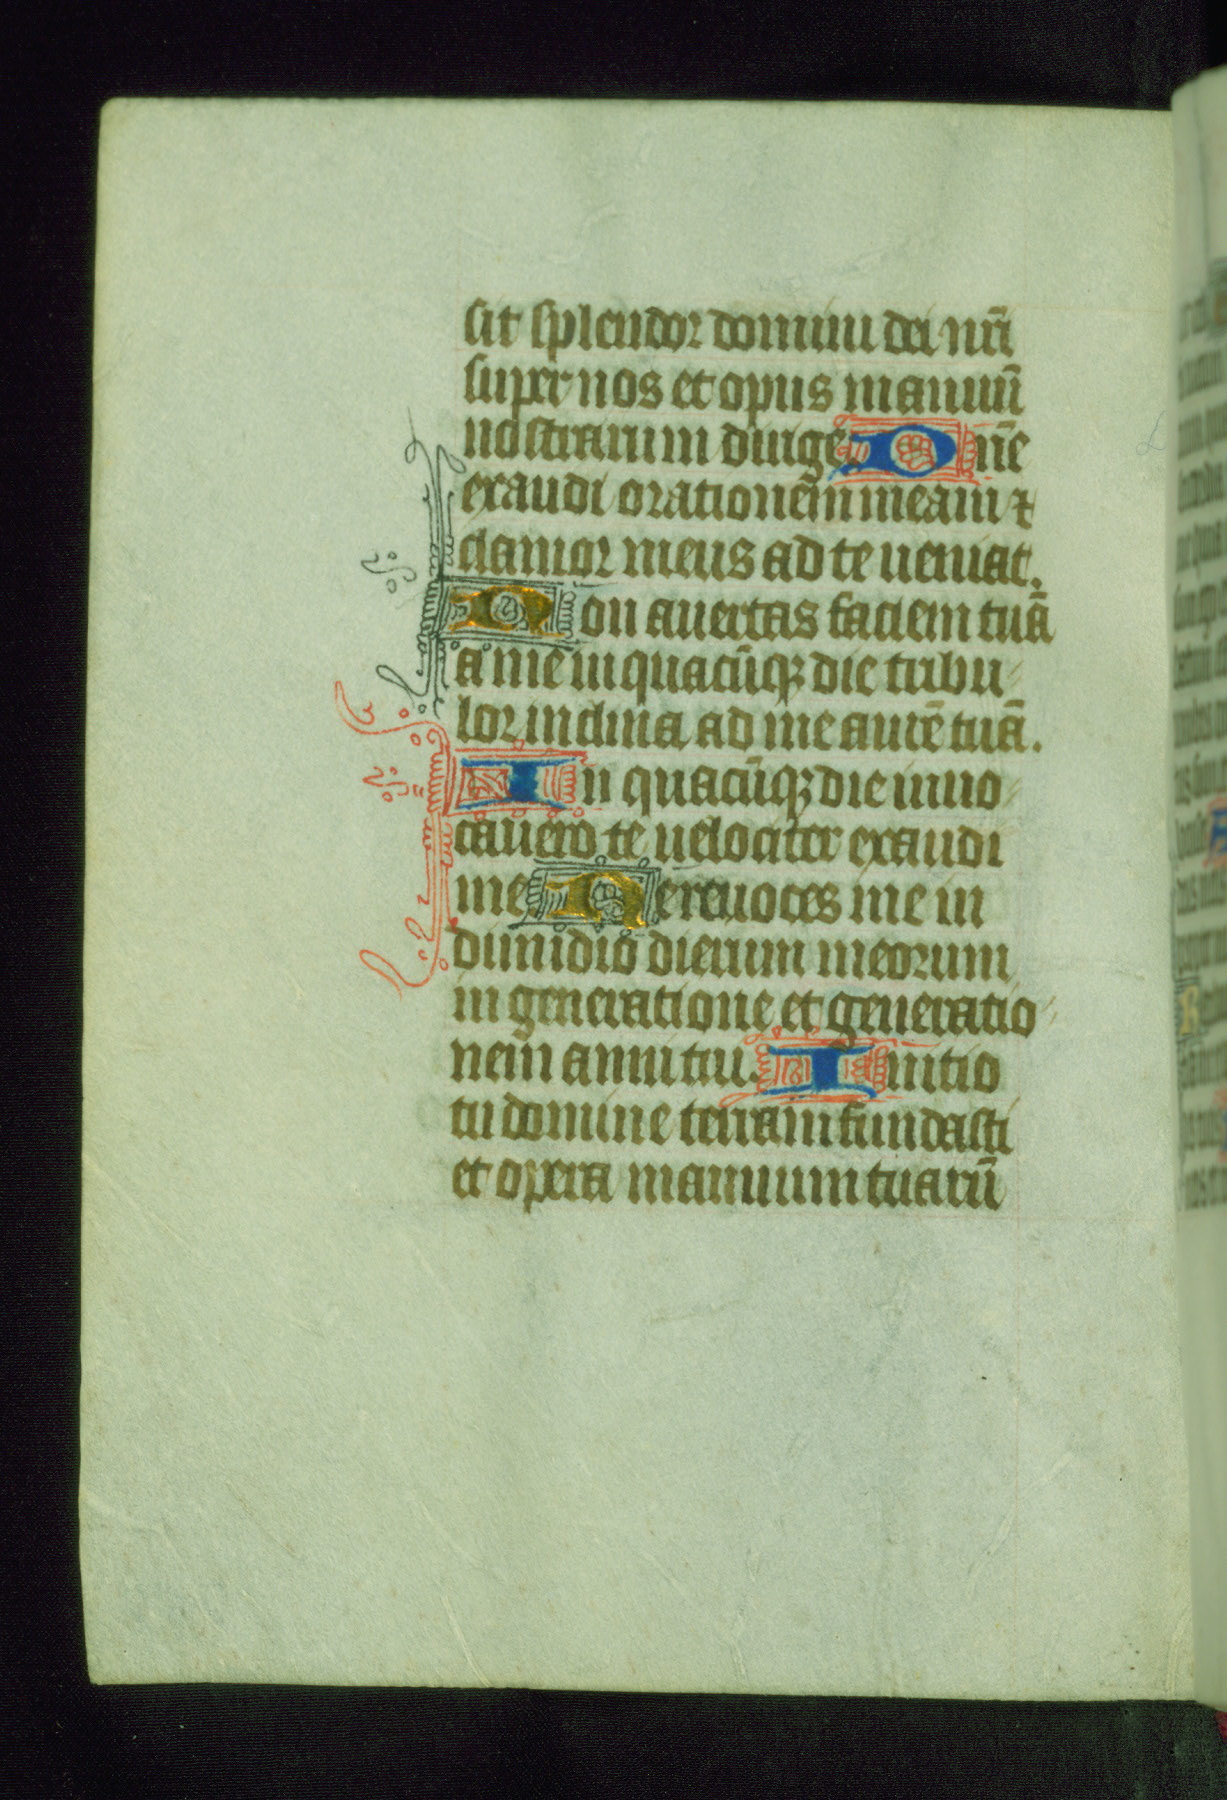 sit splendor domini dei nr̄i
super nos et opus manuū
nostrarum dirige. Dn̄e
exaudi orationem meam ⁊
clamor meus ad te ueniat.
Non auertas faciem tuā
a me in quacūqꝫ die tribu
lor inclina ad me aurē tuā.
In quacūqꝫ die inuo
cauero te uelociter exaudi
me. Ne reuoces me in
dimidio dierum meorum
in generatione et generatio
nem anni tui. Initio
tu domine terram fundasti
et opera manuum tuarū